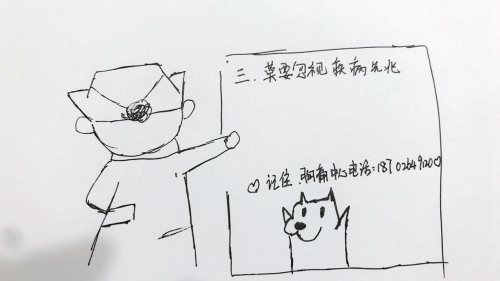 三.莫要忽视疾病先兆
记住.胸痛中心电话:18702649200